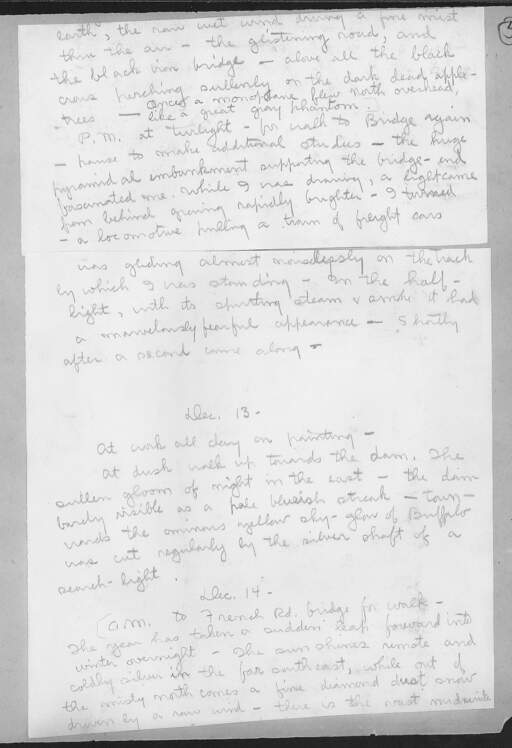 earth, the raw wet wind driving a fine mist
thru the air – the glistening road, and
the black iron bridge – above all the black
crows perching sullenly on the dark dead apple-
trees — Once, a monoplane flew north overhead,
like a great gray phantom.
P.M. at twilight – for walk to Bridge again
– pause to make additional studies – the huge
pyramidal embankment supporting the bridge-end
fascinated me. While I was drawing, a light came
from behind growing rapidly brighter – I turned
– a locomotive pulling a train of freight cars
was gliding almost noiselessly on the track
by which I was standing – In the half-
light, with its spurting steam & smoke it had
a marvelously fearful appearance – Shortly
after a second came along –
Dec. 13 –
At work all day on painting –
At dusk walk up towards the dam. The
sullen gloom of night in the east – the dam
barely visible as a pale bluish streak – tow-
wards the ominous yellow sky-glow of Buffalo
was cut regularly by the silver shaft of a
search-light.
Dec. 14 –
(a.m. to French Rd. bridge for walk –
The year has taken a sudden leap forward into
winter overnight – The sun shines remote and
coldly silver in the far southeast, while out of
the misty north comes a fine diamond dust snow
driven by a raw wind – there is the most